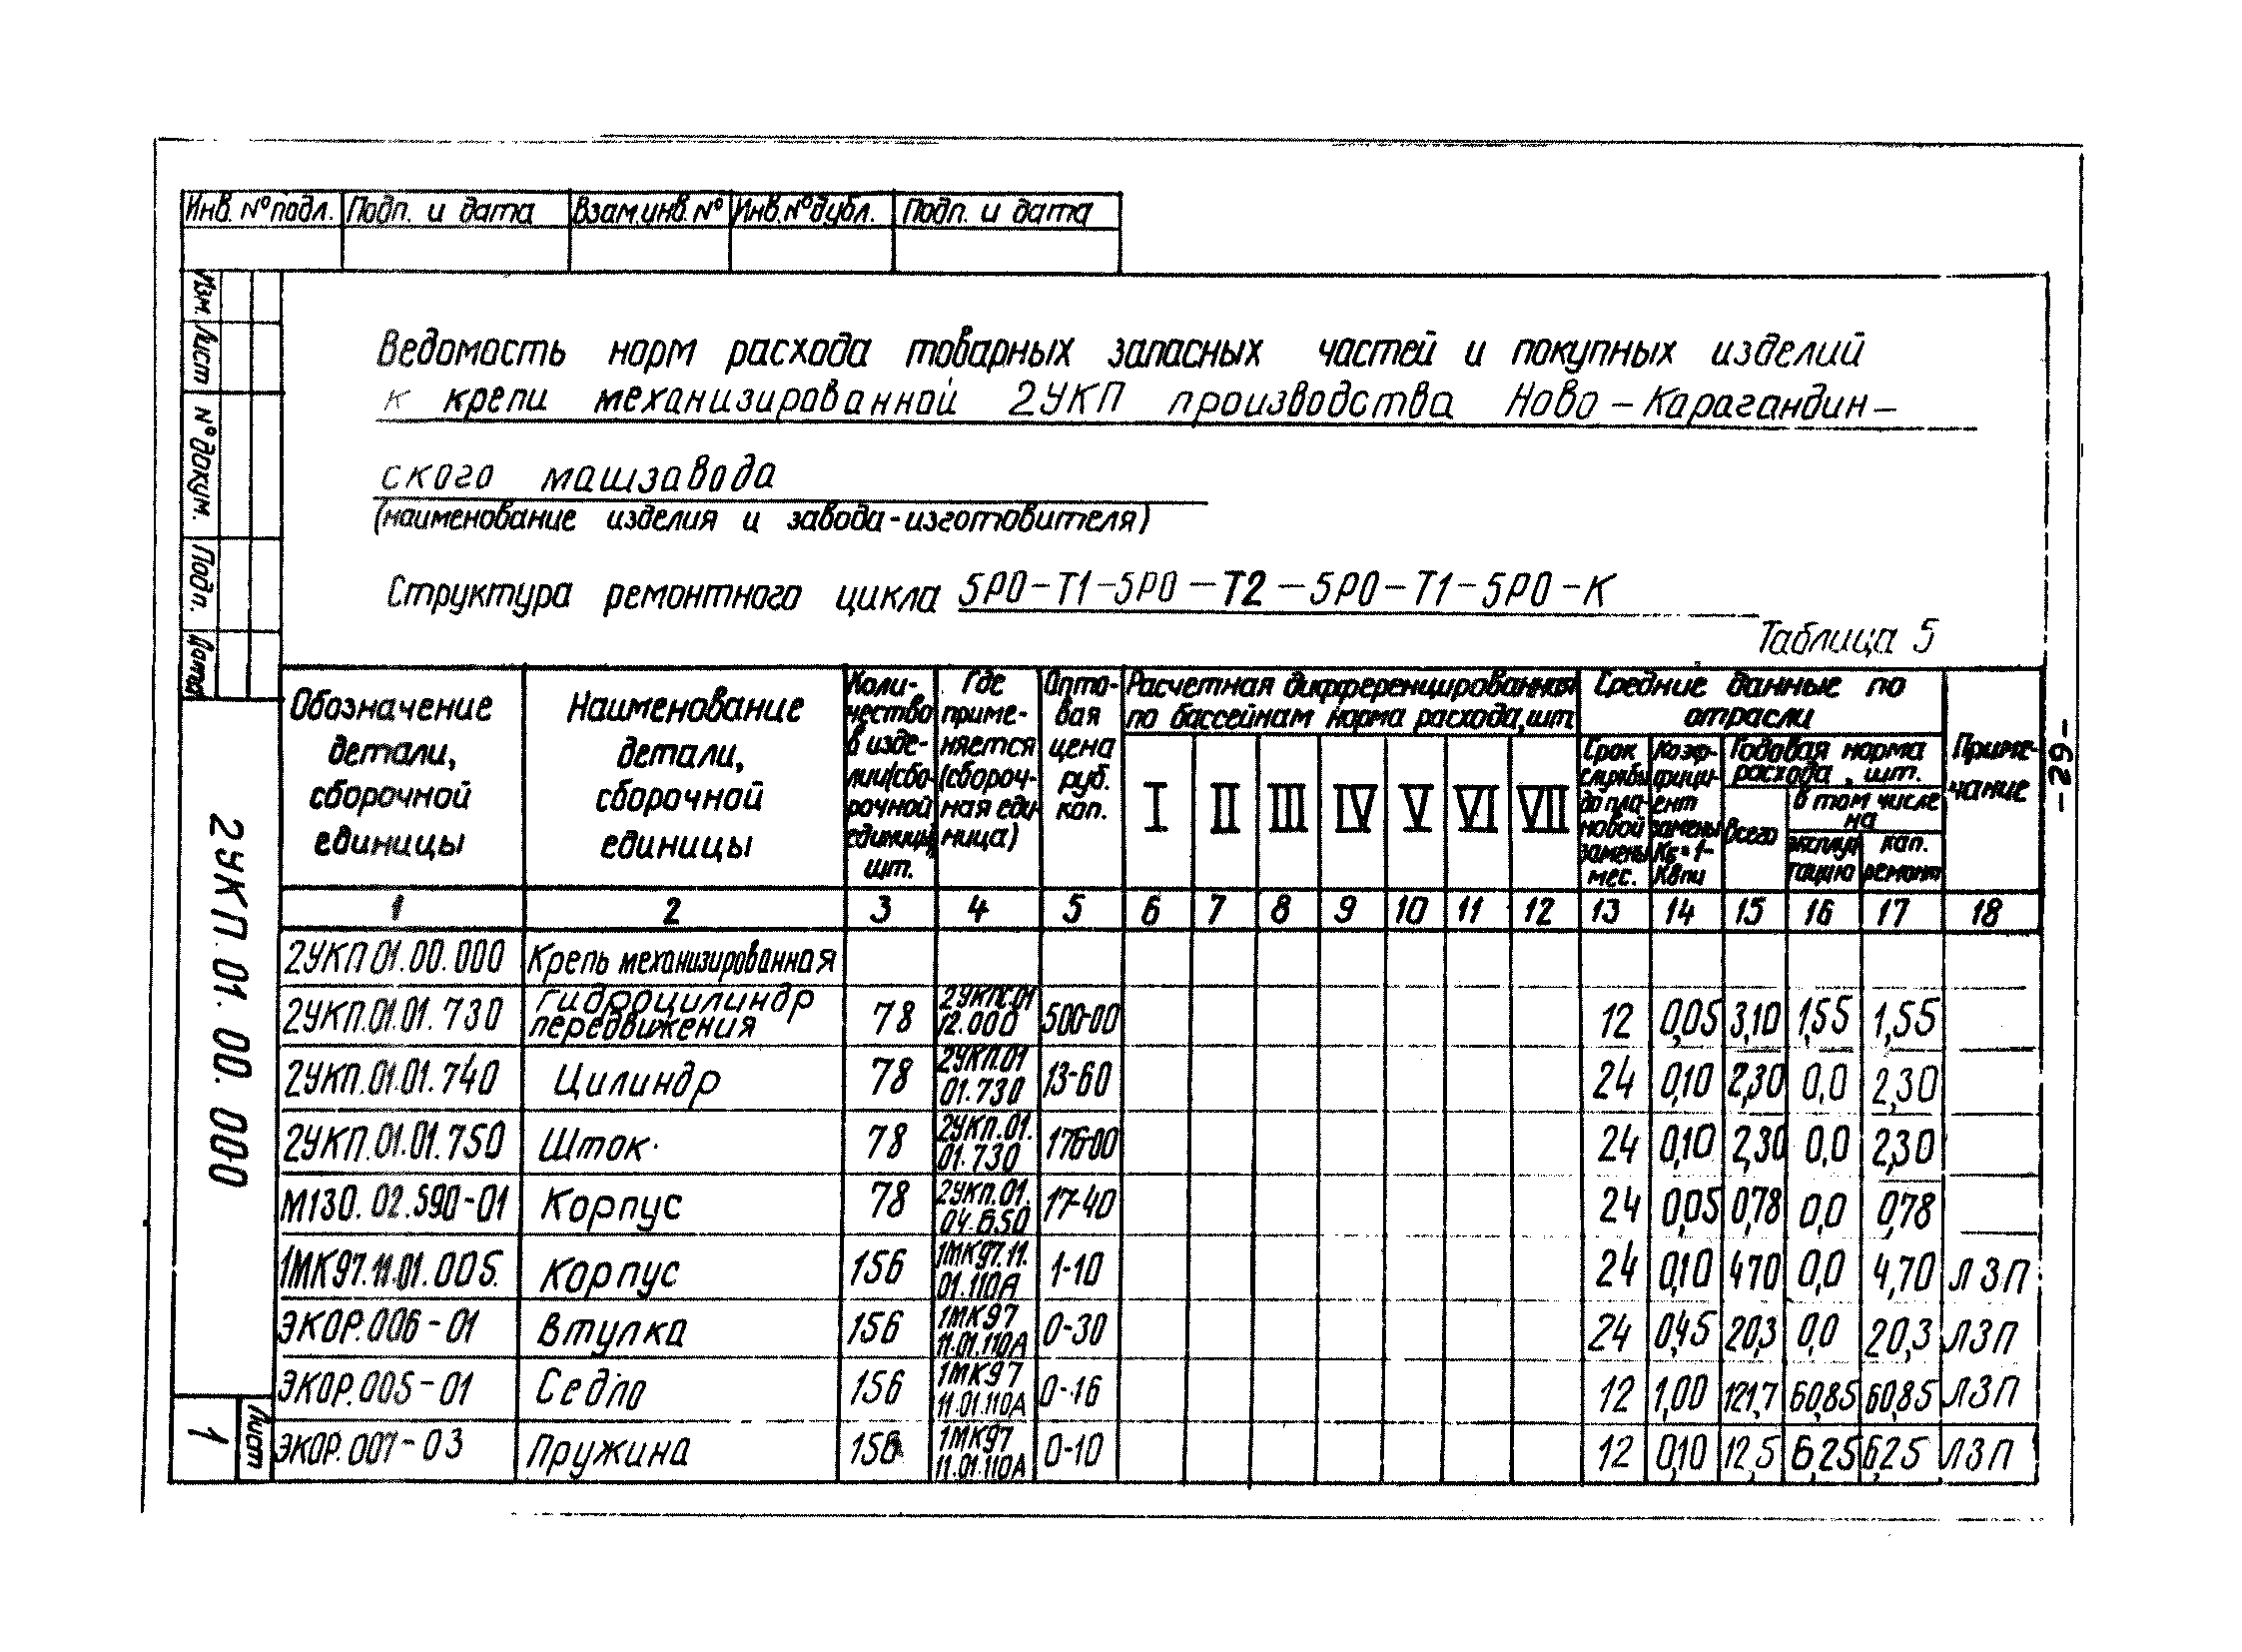 Инв. № подл. Подп. и дата Взам. инв. № Инв. № дубл. Подп. и дата
Изм. Лист № докум. Подп. Дата
Ведомость норм расхода товарных запасных частей и покупных изделий
к крепи механизированной 2УКП производства Ново-Карагандин-
ского машзавода
(наименование изделия и завода-изготовителя)
Структура ремонтного цикла 5РО-Т1-5РО-Т2-5РО-Т1-5РО-К
Таблица 5
Обозначение детали, сборочной единицы
Наименование детали, сборочной единицы
Количество в изделии (сборочной единицы), шт.
Где применяется (сборочная единица)
Оптовая цена руб. коп.
Расчетная дифференцированная по бассейнам норма расхода, шт.
I II III IV V VI VII
Средние данные по отрасли
Срок службы до плановой замены мес.
Коэффициент замены Кз=1-Квпи
Годовая норма расхода, шт.
всего
в том числе на
эксплуатацию
кап. ремонт
Примечание
1 2 3 4 5 6 7 8 9 10 11 12 13 14 15 16 17 18
2УКП.01.00.000 Крепь механизированная
2УКП.01.01.730 Гидроцилиндр передвижения 78 2УКПС.01 12.000 500-00 12 0,05 3,10 1,55 1,55
2УКП.01.01.740 Цилиндр 78 2УКП.01 01.730 13-60 24 0,10 2,30 0,0 2,30
2УКП.01.01.750 Шток 78 2УКП.01. 01.730 176-00 24 0,10 2,30 0,0 2,30
М130.02.590-01 Корпус 78 2УКП.01. 04.650 17-40 24 0,05 0,78 0,0 0,78
1МК97.11.01.005. Корпус 156 1МК97.11. 01.110А 1-10 24 0,10 4,70 0,0 4,70 ЛЗП
ЭКОР.006-01 Втулка 156 1МК97 11.01.110А 0-30 24 0,45 20,3 0,0 20,3 ЛЗП
ЭКОР.005-01 Седло 156 1МК97 11.01.110А 0-16 12 1,00 121,7 60,85 60,85 ЛЗП
ЭКОР.007-03 Пружина 156 1МК97 11.01.110А 0-10 12 0,10 12,5 6,25 6,25 ЛЗП
2УКП.01.00.000
Лист
1
-29-